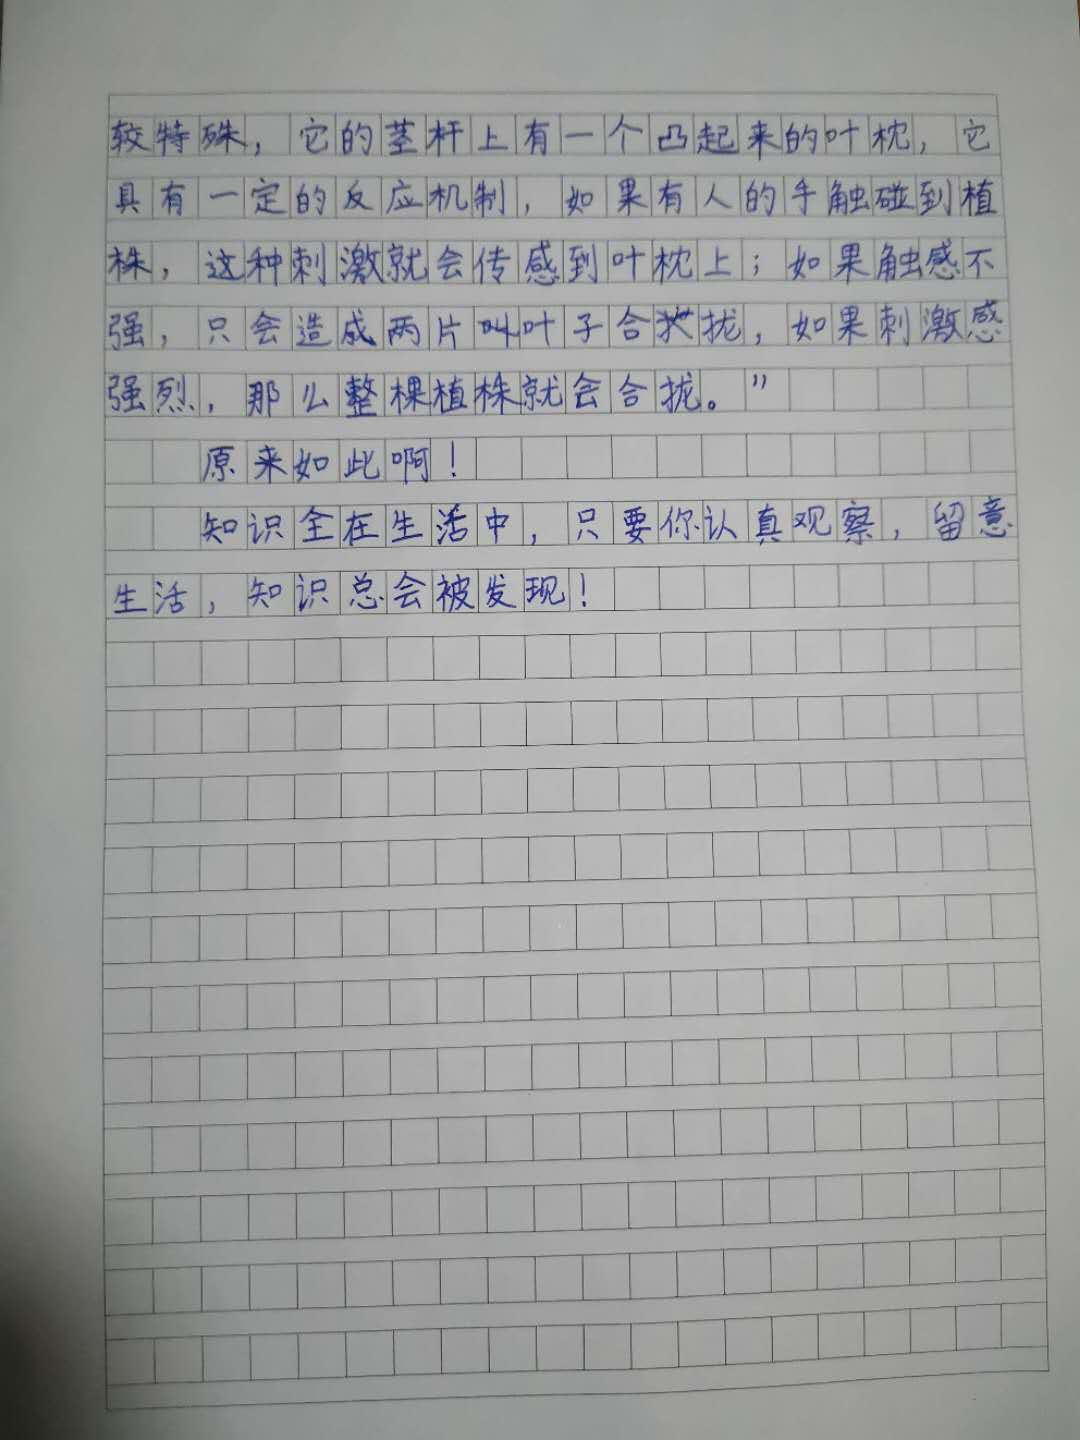 较特殊，它的茎杆上有一个凸起来的叶枕，它
具有一定的反应机制，如果有人的手触碰到植
株，这种刺激就会传感到叶枕上；如果触感不
强，只会造成两片叶子合拢，如果刺激感
强烈，那么整棵植株就会合拢。”
原来如此啊！
知识全在生活中，只要你认真观察，留意
生活，知识总会被发现！